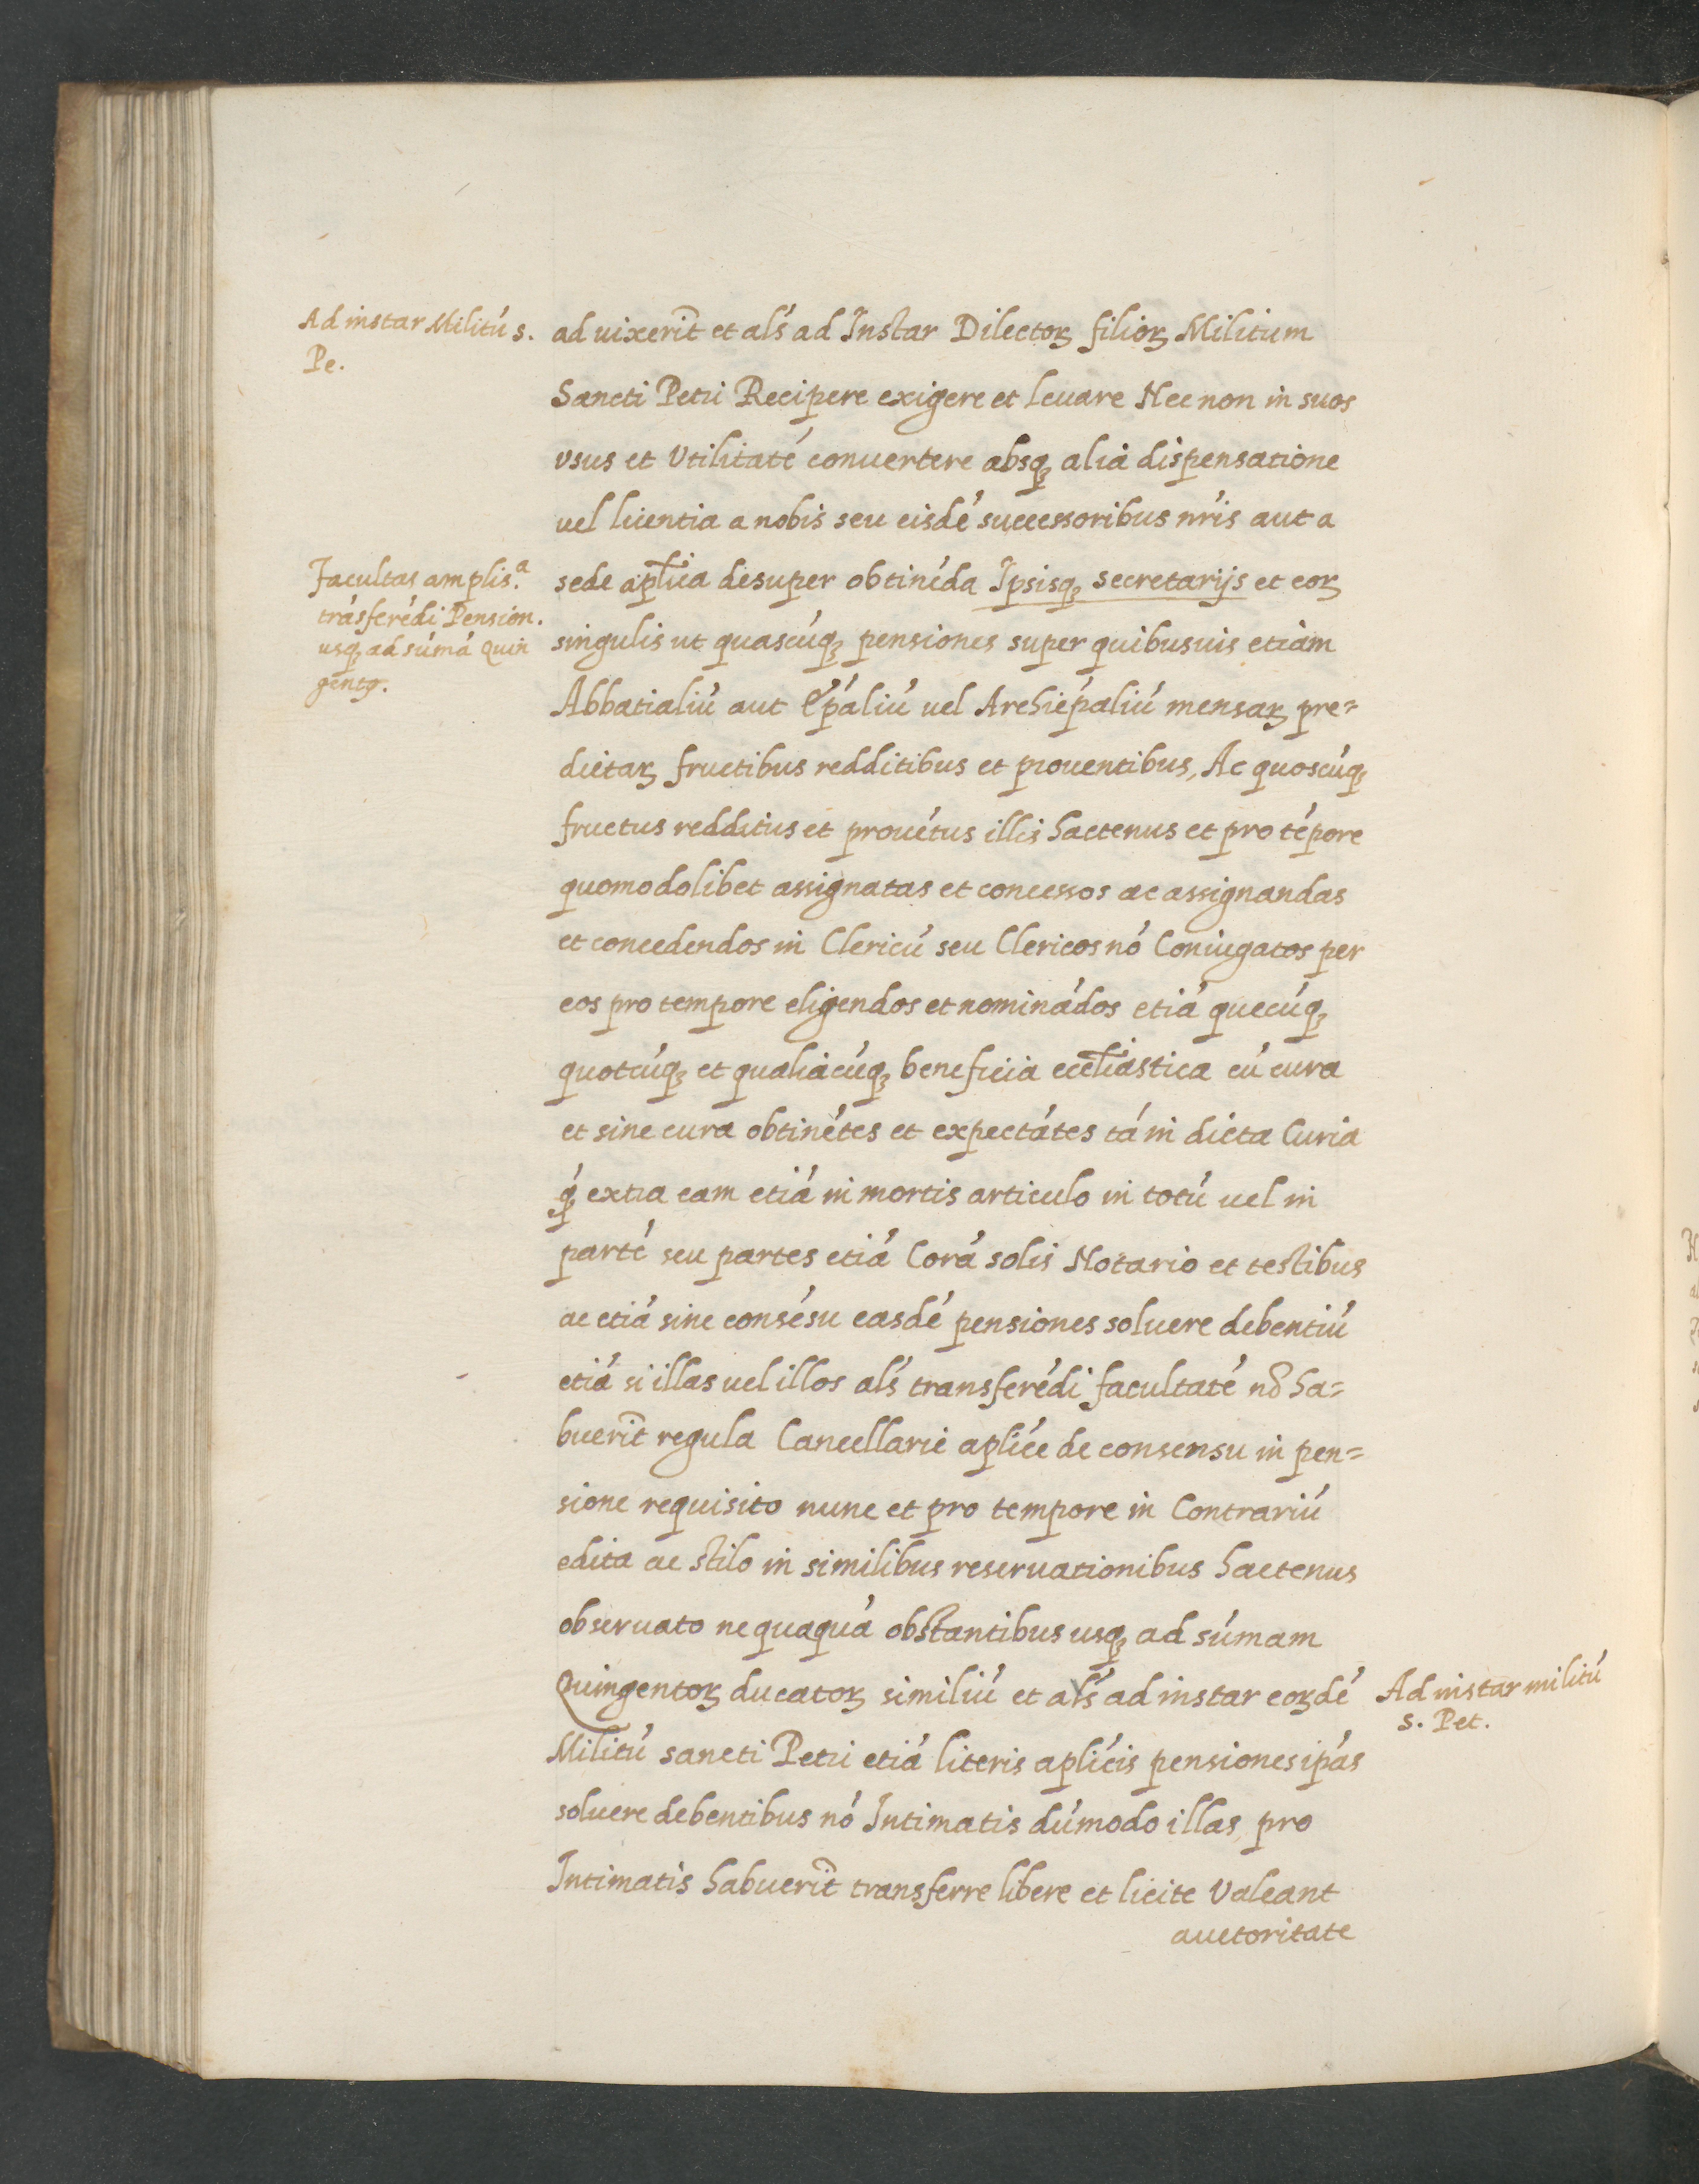 Ad instar Militú s.
Pe.
ad uixerit̃ et als̃ ad Instar Dilectoꝝ filioꝝ Militum
Sancti Petri Recipere exigere et leuare Nec non in suos
vsus et Vtilitaté conuertere absqꝫ alia dispensatione
uel licentia a nobis seu eisdé successoribus nr̃is aut a
Facultas amplis.ª
trásferédi Pension.
usqꝫ ad súmá Quin
gentꝫ.
sede apl̃ica desuper obtinéda Ipsisqꝫ secretarijs et eoꝝ
singulis ut quascúqꝫ pensiones super quibusuis etiam
Abbatialiú aut Ep̃aliú uel Archiep̃aliú mensaꝝ pre=
dictaꝝ fructibus redditibus et prouentibus, Ac quoscúqꝫ
fructus redditus et prouétus illis hactenus et pro tépore
quomodolibet assignatas et concessos ac assignandas
et concedendos in Clericú seu Clericos nó Coniugatos per
eos pro tempore eligendos et nominádos etiá quecúqꝫ
quotcúqꝫ et qualiacúqꝫ beneficia eccl̃iastica cú cura
et sine cura obtinétes et expectátes tá in dicta Curia
q́ꝫ extra eam etiá in mortis articulo in totú uel in
parté seu partes etiá Corá solis Notario et testibus
ac etiá sine consésu easdé pensiones soluere debentiú
etiá si illas uel illos als̃ transferédi facultaté nõ ha=
buerit̃ regula Cancellarie apl̃ice de consensu in pen=
sione requisito nunc et pro tempore in Contrariú
edita ac stilo in similibus reseruationibus hactenus
obseruato nequaquá obstantibus usqꝫ ad súmam
Quingentoꝝ ducatoꝝ similiú et als̃ ad instar eoꝝdé
Ad instar militú
s. Pet.
Militú sancti Petri etiá literis apl̃icis pensiones ip̃as
soluere debentibus nó Intimatis dúmodo illas pro
Intimatis habuerit̃ transferre libere et licite Valeant
auctoritate